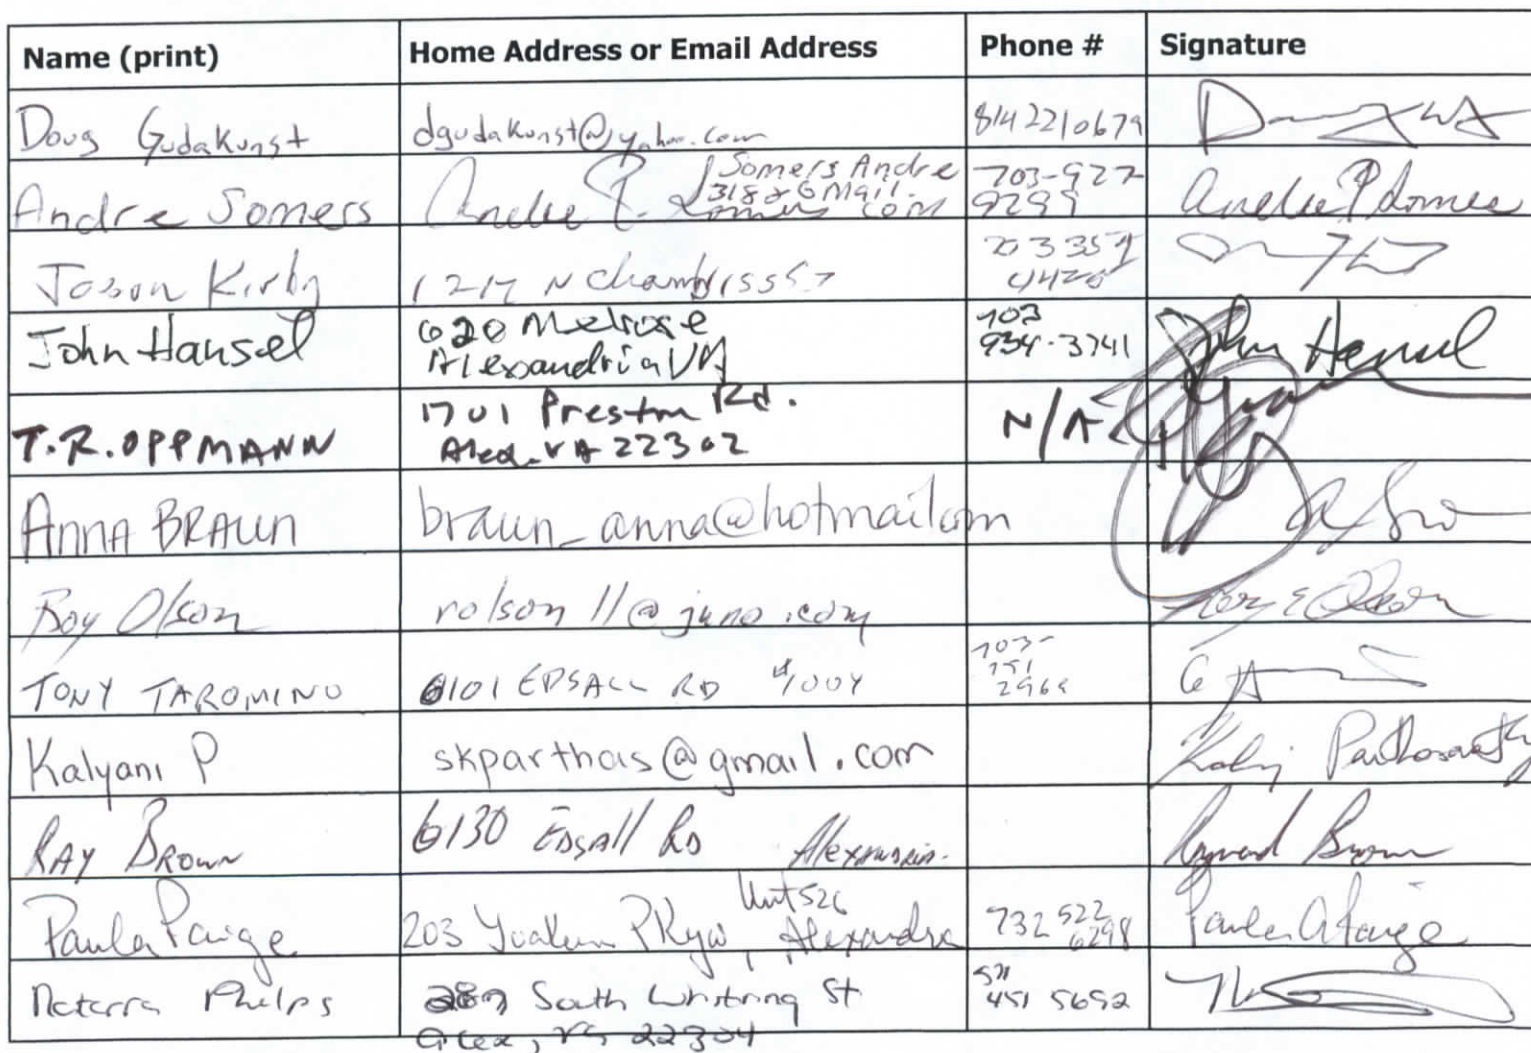 Name (print) Home Address or Email Address Phone # Signature
Doug Gudakunst dgudakunst@yahoo.com 8142210679
Andre Somers Andre P. Somers Somers Andre 703-927
318@GMail. 9299 Andre P Somers
com
Jason Kirby 1217 N Chambliss 703 357
4420
John Hansel 620 Melrose 703 John Hansel
Alexandria VA 934-3741
T.R. OPPMANN 1701 Preston Rd. N/A
Alex. VA 22302
ANNA BRAUN braun_anna@hotmail.com
Roy Olson rolson11@juno.com Roy E Olson
TONY TAROMINO 6101 EDSALL RD #1004 703-
751
2969
Kalyani P skparthas@gmail.com Parthasarathy
RAY BROWN 6130 EDSAll RD Alexandria. Raymond Brown
Paula Paige 203 Yoakum PKyw, Unit 526 732 522 Paula A Paige
Alexandria 6298
Phelps South Whiting St 571
Alex, VA 22304 451 5692